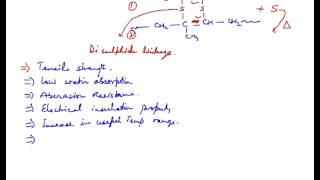 ① S S + S
~ CH₂ - C - CH - CH₂ ~
② CH₃ Δ
Disulphide linkage.
⇒ Tensile strength.
⇒ Low water absorption
⇒ Abrasion Resistance.
⇒ Electrical insulation property
⇒ Increase in useful Temp range.
⇒
⇒